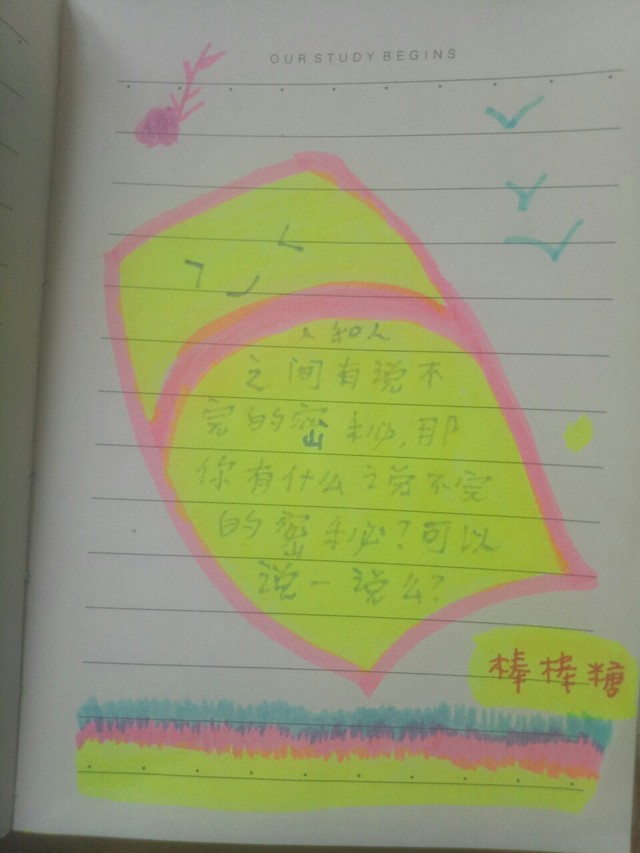 OUR STUDY BEGINS
人和人
之间有说不
完的密秘,那
你有什么说不完
的密秘?可以
说一说么?
棒棒糖